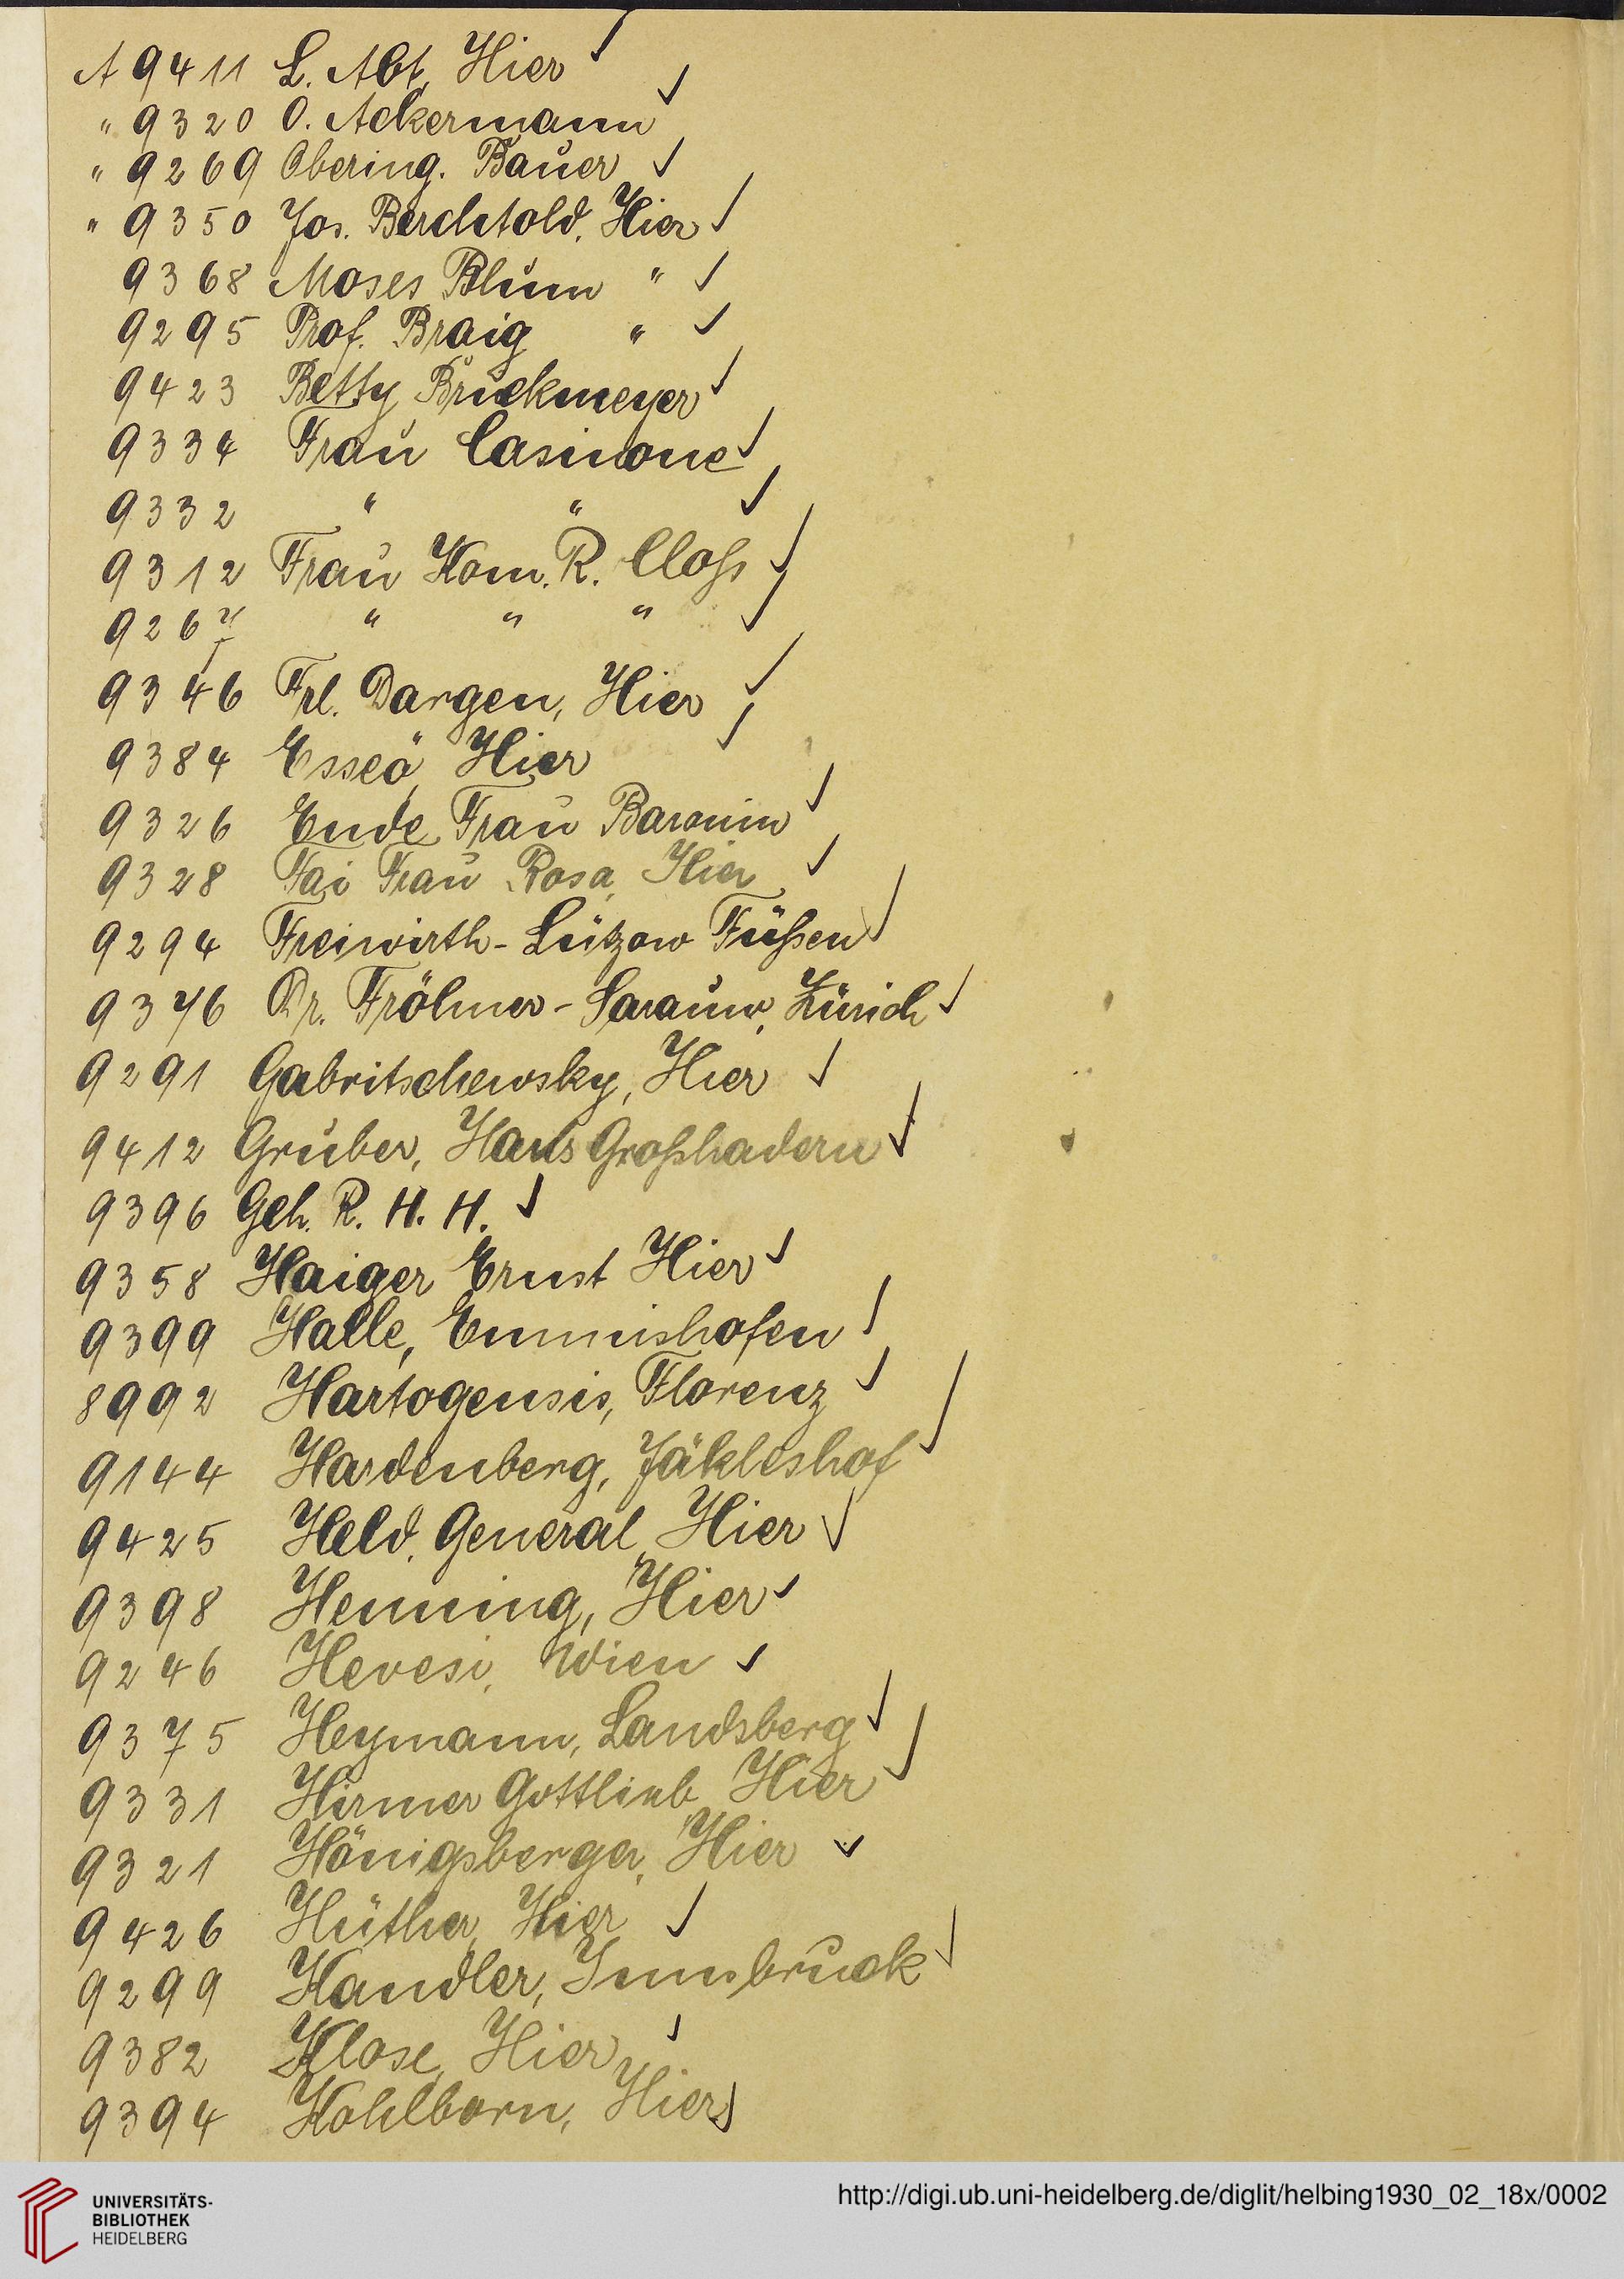 A 9411 L. Abt, Hier ✓
" 9320 O. Ackermann ✓
" 9269 Obering. Bauer ✓
" 9350 Jos. Berchtold, Hier ✓
9368 Moses Blum " ✓
9295 Prof. Braig " ✓
9423 Betty Bruckmeyer ✓
9334 Frau Casinone ✓
9332 " " ✓
9312 Frau Kom. R. Cloß ✓
9267 " " " ✓
9346 Frl. Dargen, Hier ✓
9384 Esseö, Hier ✓
9326 Ende, Frau Baronin ✓
9328 Fai Frau Rosa, Hier ✓
9294 Freiwirth-Lützow Füßen ✓
9376 Dr. Fröhner-Sarauw, Zürich ✓
9291 Gabritschewsky, Hier ✓
9412 Gruber, Hans Großhadern ✓
9396 Geh. R. H. H. ✓
9358 Haiger Ernst Hier ✓
9399 Halle, Emmishofen ✓
8992 Hartogensis, Florenz ✓
9144 Hardenberg, Jäkleshof ✓
9425 Held, General, Hier ✓
9398 Henning, Hier ✓
9246 Hevesi, Wien ✓
9375 Heymann, Landsberg ✓
9331 Hirmer Gottlieb, Hier ✓
9321 Hönigsberger, Hier ✓
9426 Hüther, Hier ✓
9299 Kandler, Innsbruck ✓
9382 Klose, Hier ✓
9394 Kohlborn, Hier ✓
UNIVERSITÄTS-
BIBLIOTHEK
HEIDELBERG
http://digi.ub.uni-heidelberg.de/diglit/helbing1930_02_18x/0002